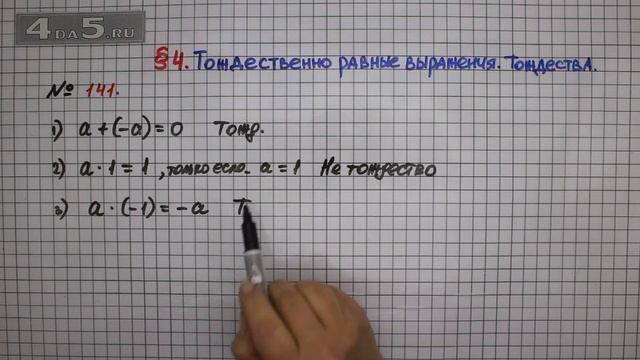 4DA5.RU
§4. Тождественно равные выражения. Тождества.
№ 141.
1) a + (-a) = 0 Тожд.
2) a · 1 = 1, только если a = 1 Не тождество
3) a · (-1) = -a Т